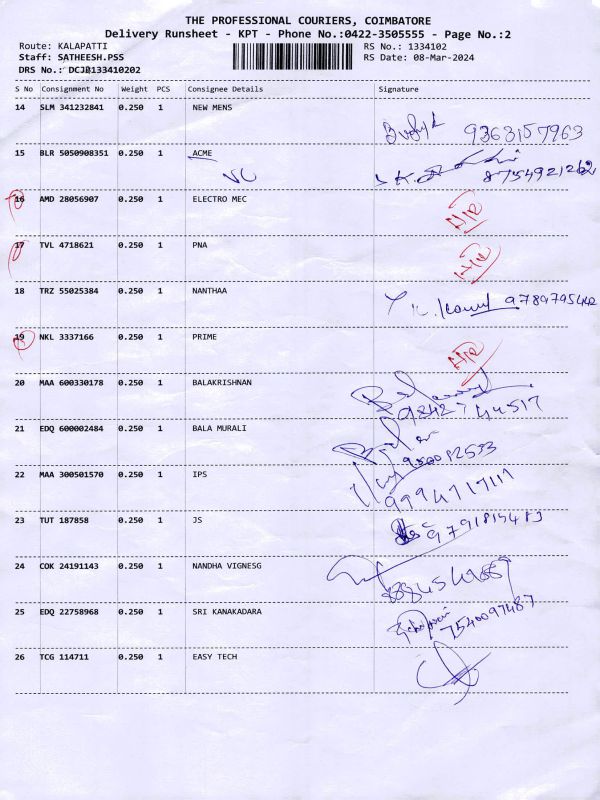 THE PROFESSIONAL COURIERS, COIMBATORE
Delivery Runsheet - KPT - Phone No.:0422-3505555 - Page No.:2
Route: KALAPATTI RS No.: 1334102
Staff: SATHEESH.PSS RS Date: 08-Mar-2024
DRS No.: DCJB133410202
S No Consignment No Weight PCS Consignee Details Signature
14 SLM 341232841 0.250 1 NEW MENS 9363157963
15 BLR 5050908351 0.250 1 ACME 8754921262
16 AMD 28056907 0.250 1 ELECTRO MEC
17 TVL 4718621 0.250 1 PNA
18 TRZ 55025384 0.250 1 NANTHAA 9789795442
19 NKL 3337166 0.250 1 PRIME
20 MAA 600330178 0.250 1 BALAKRISHNAN 9842744517
21 EDQ 600002484 0.250 1 BALA MURALI
22 MAA 300501570 0.250 1 IPS
23 TUT 187858 0.250 1 JS 9791815483
24 COK 24191143 0.250 1 NANDHA VIGNESG
25 EDQ 22758968 0.250 1 SRI KANAKADARA 7540097487
26 TCG 114711 0.250 1 EASY TECH